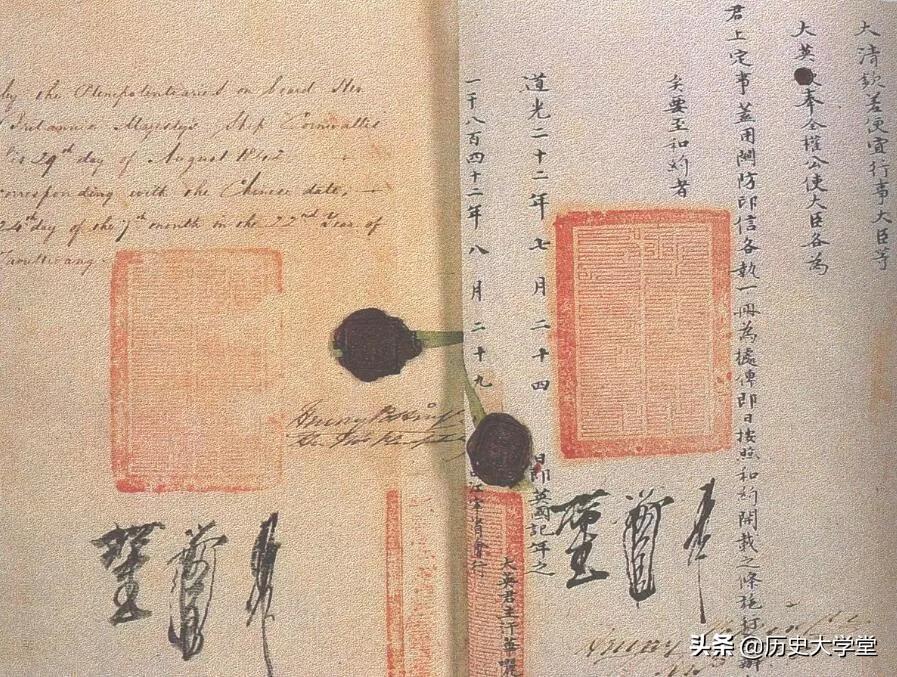 by the Plenipotentiaries on board Her
Britannic Majesty's Ship Cornwallis
this 29th day of August 1842
corresponding with the Chinese date,
24th day of the 7th month in the 22nd Year of
Taoukwang
Henry Pottinger
大清欽差便宜行事大臣等
大英
奉全權公使大臣各為
君上定事蓋用關防印信各執一冊為據俾即日按照和約開載之條施行
矣要至和約者
道光二十二年七月二十四
日即英國記年之
一千八百四十二年八月二十九
大英君主汗華
头条 @历史大学堂